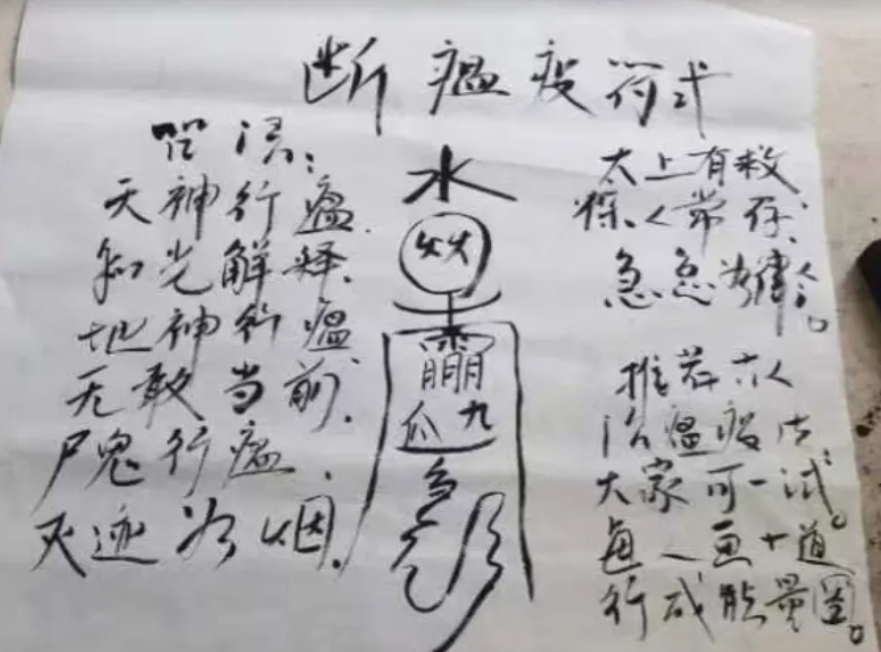 断瘟疫符式
咒语:
天神行瘟
知光解释.
地神行瘟
无敢当前.
尸鬼行瘟
灭迹为烟.
水
火火
雨
爪九
太上有敕
保人常存.
急急如律令。
推荐古人
治瘟疫法
大家可一试。
每人画十道
形成能量圈。